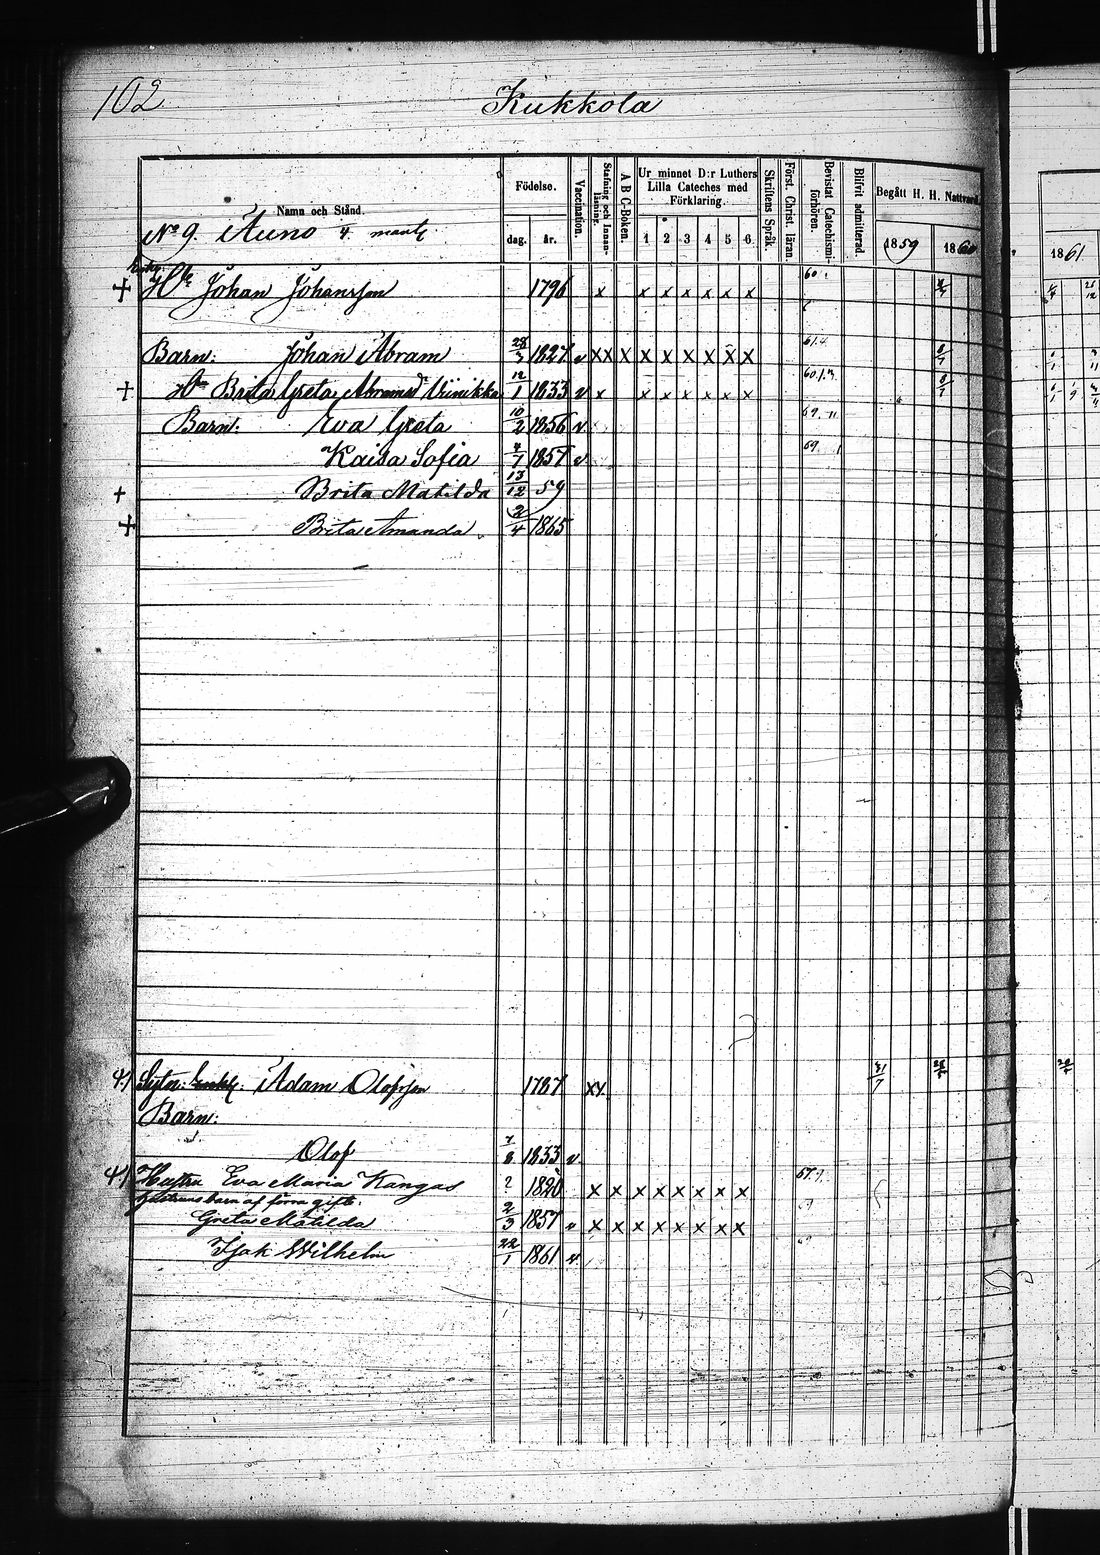 102
Kukkola
Namn och Stånd.
Födelse.
dag. år.
Vaccination.
Stafning och Innan-läsning.
A B C-Boken.
Ur minnet D:r Luthers
Lilla Cateches med
Förklaring.
1 2 3 4 5 6
Skriftens Språk.
Förkl. Christ. läran.
Bevistat Catechismi-förhören.
Blifvit admitterad.
Begått H. H. Nattvard.
1859 1860
1861
No 9. Auno
+ Johan Johansson 1796 x x x x x x x 60
Barn: Johan Abram 28/3 1827 v x x x x x x x x x 61.
+ Brita Greta Abramsd Viinikka 12/1 1833 v x x x x x x x
Barn: Eva Greta 10/2 1856 v
Kaisa Sofia 1857 v
+ Brita Matilda 13/12 59
+ Brita Amanda 2/4 1865
Adam Olofsson 1787 x x 31/7
Barn:
Olof 7/8 1833 v
Hustru Eva Maria Kangas ? 1820 x x x x x x x x
Hustruns barn af förra gifte.
Greta Matilda 2/3 1857 v x x x x x x x x
Isak Wilhelm 22/1 1861 v